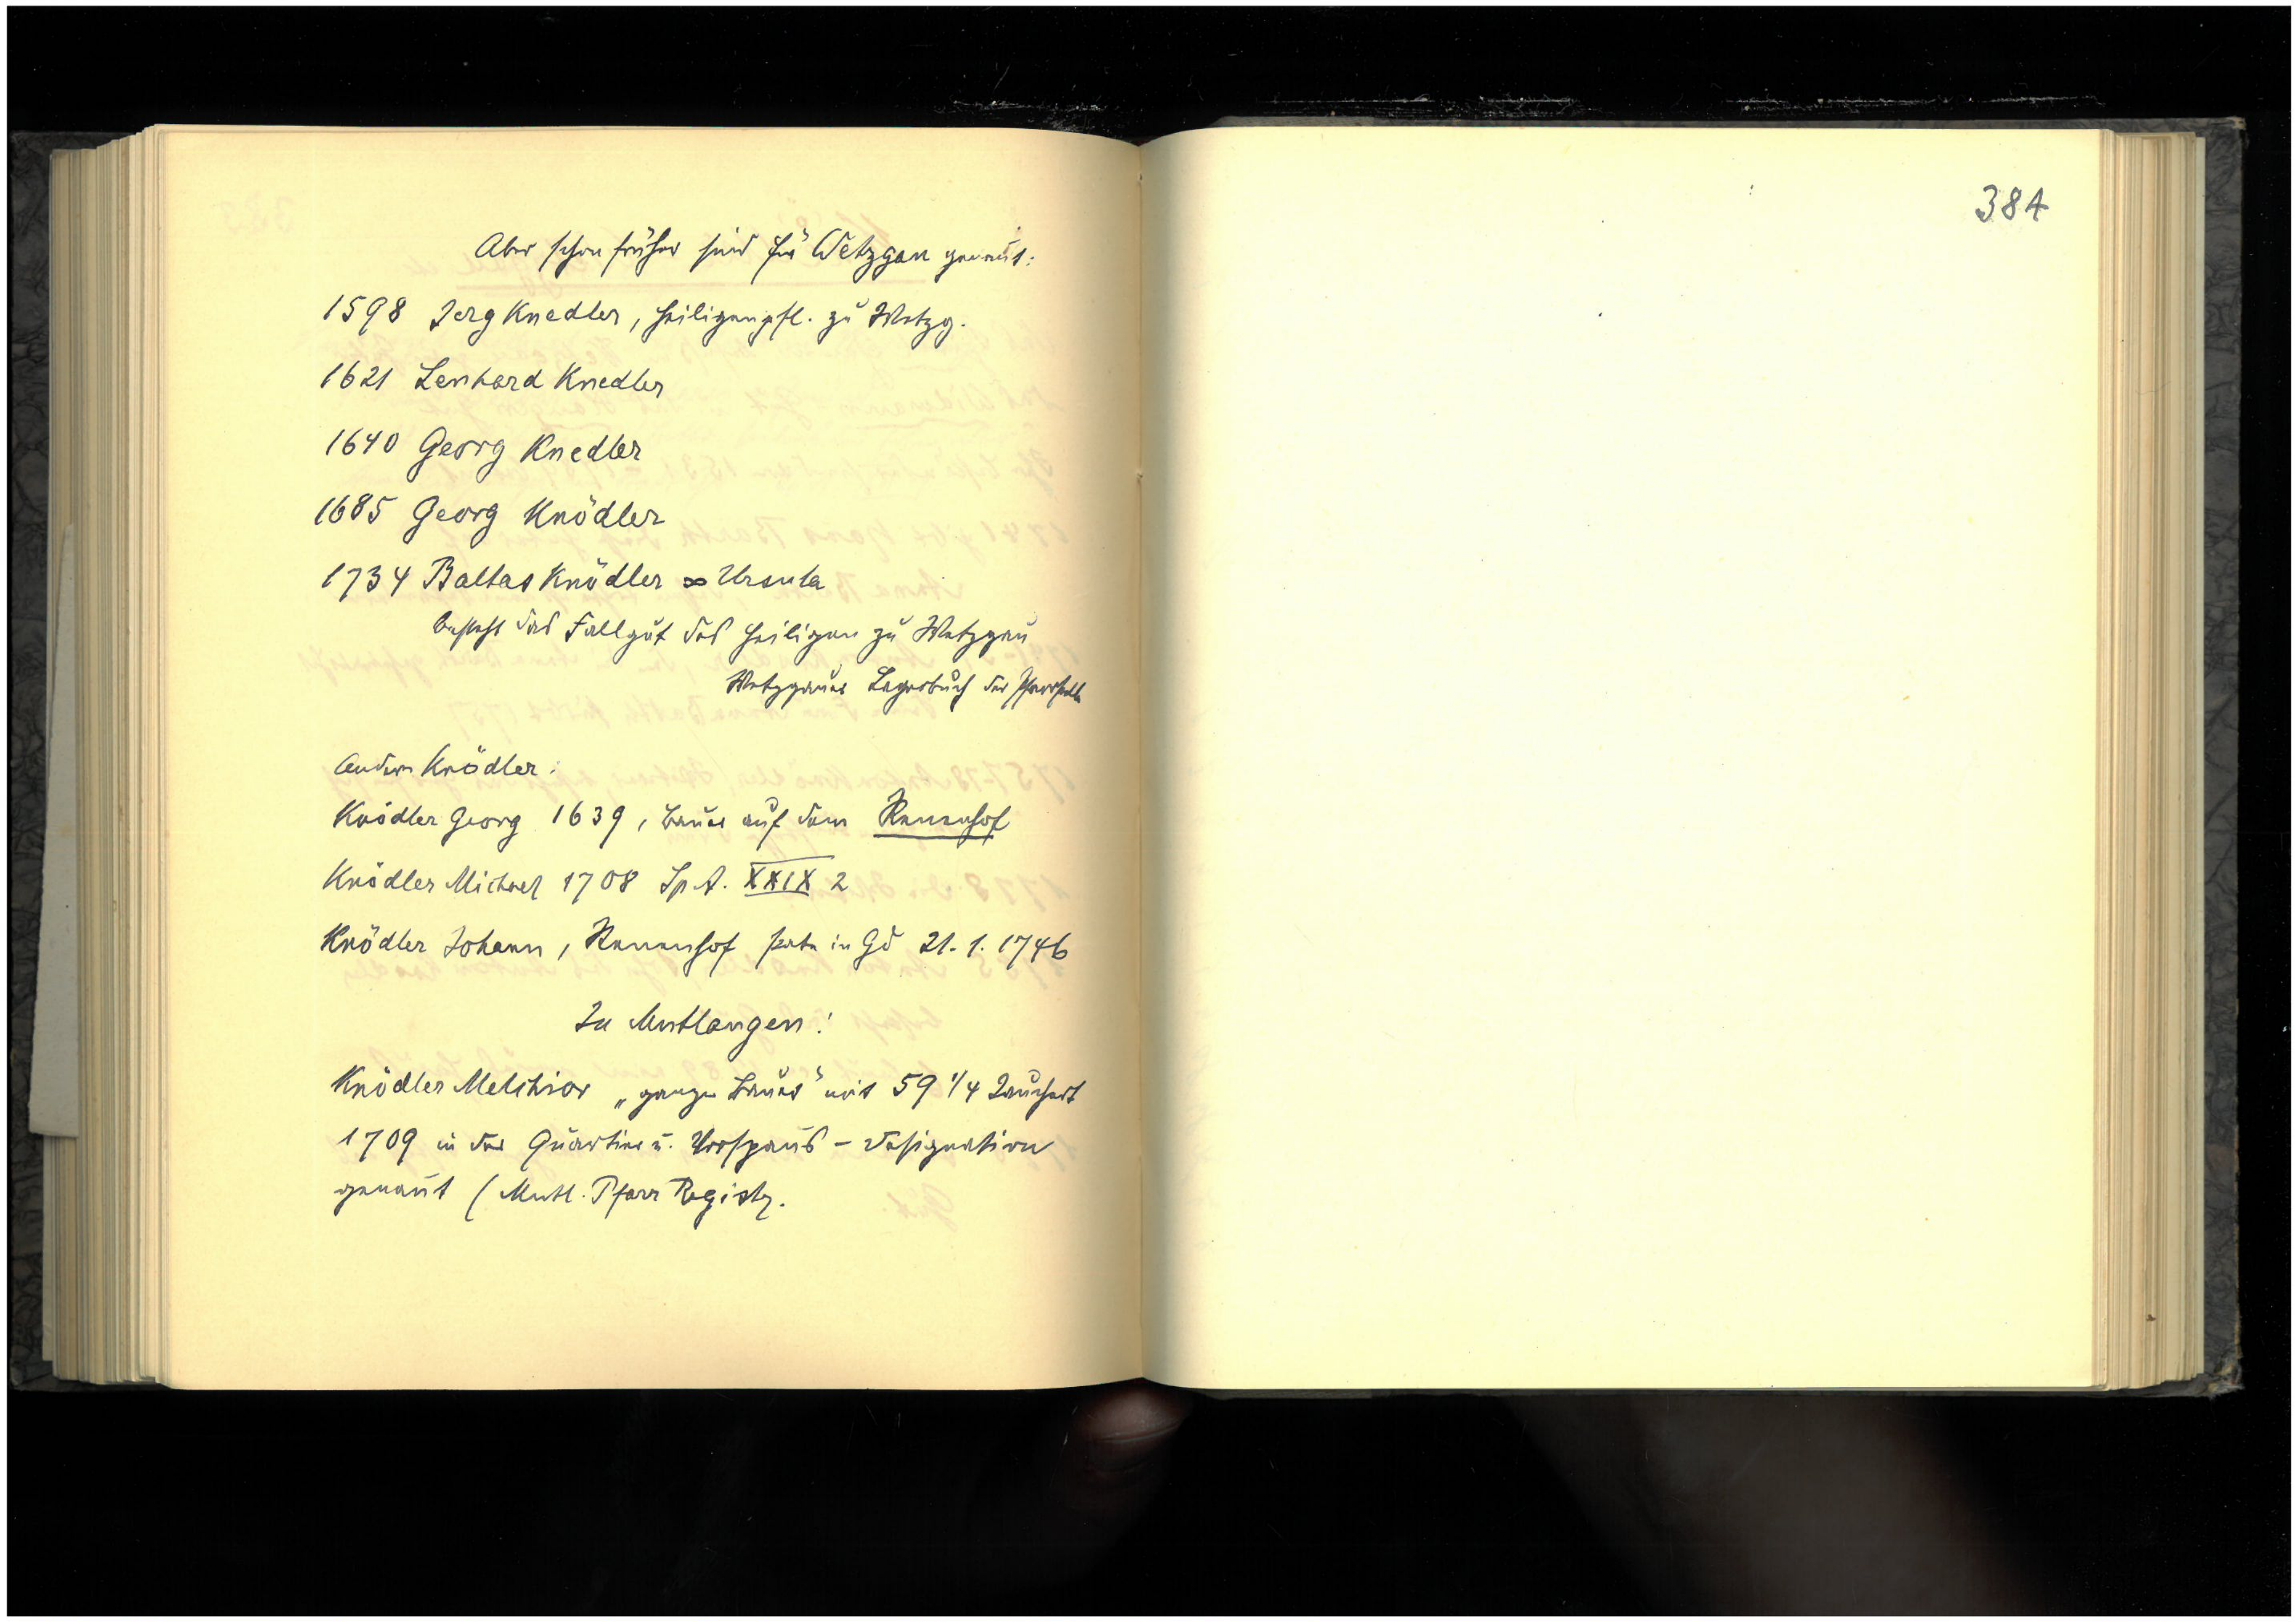 Aber schon früher sind für Wetzgau genañt:
1598 Jerg Knedler, Heiligenpfl. zu Wetzg.
1621 Lenhard Knedler
1640 Georg Knedler
1685 Georg Knödler
1734 Baltas Knödler ∞ Ursula
besteht das Fallgut des Heiligen zu Wetzgau
Wetzgauer Lagerbuch der Pfarrstelle
Andere Knödler:
Knödler Georg 1639, Bauer auf dem
Knödler Michael 1708 Sp. A. XXIX 2
Knödler Johann, Pate in Gd 21. 1. 1746
In Mutlangen:
Knödler Melchior „ganzer Bauer" mit 59 1/4 Jauchert
1709 in der Quartier u. Vorspanns - designation
genañt (Mutl. Pfarr Registr.
384